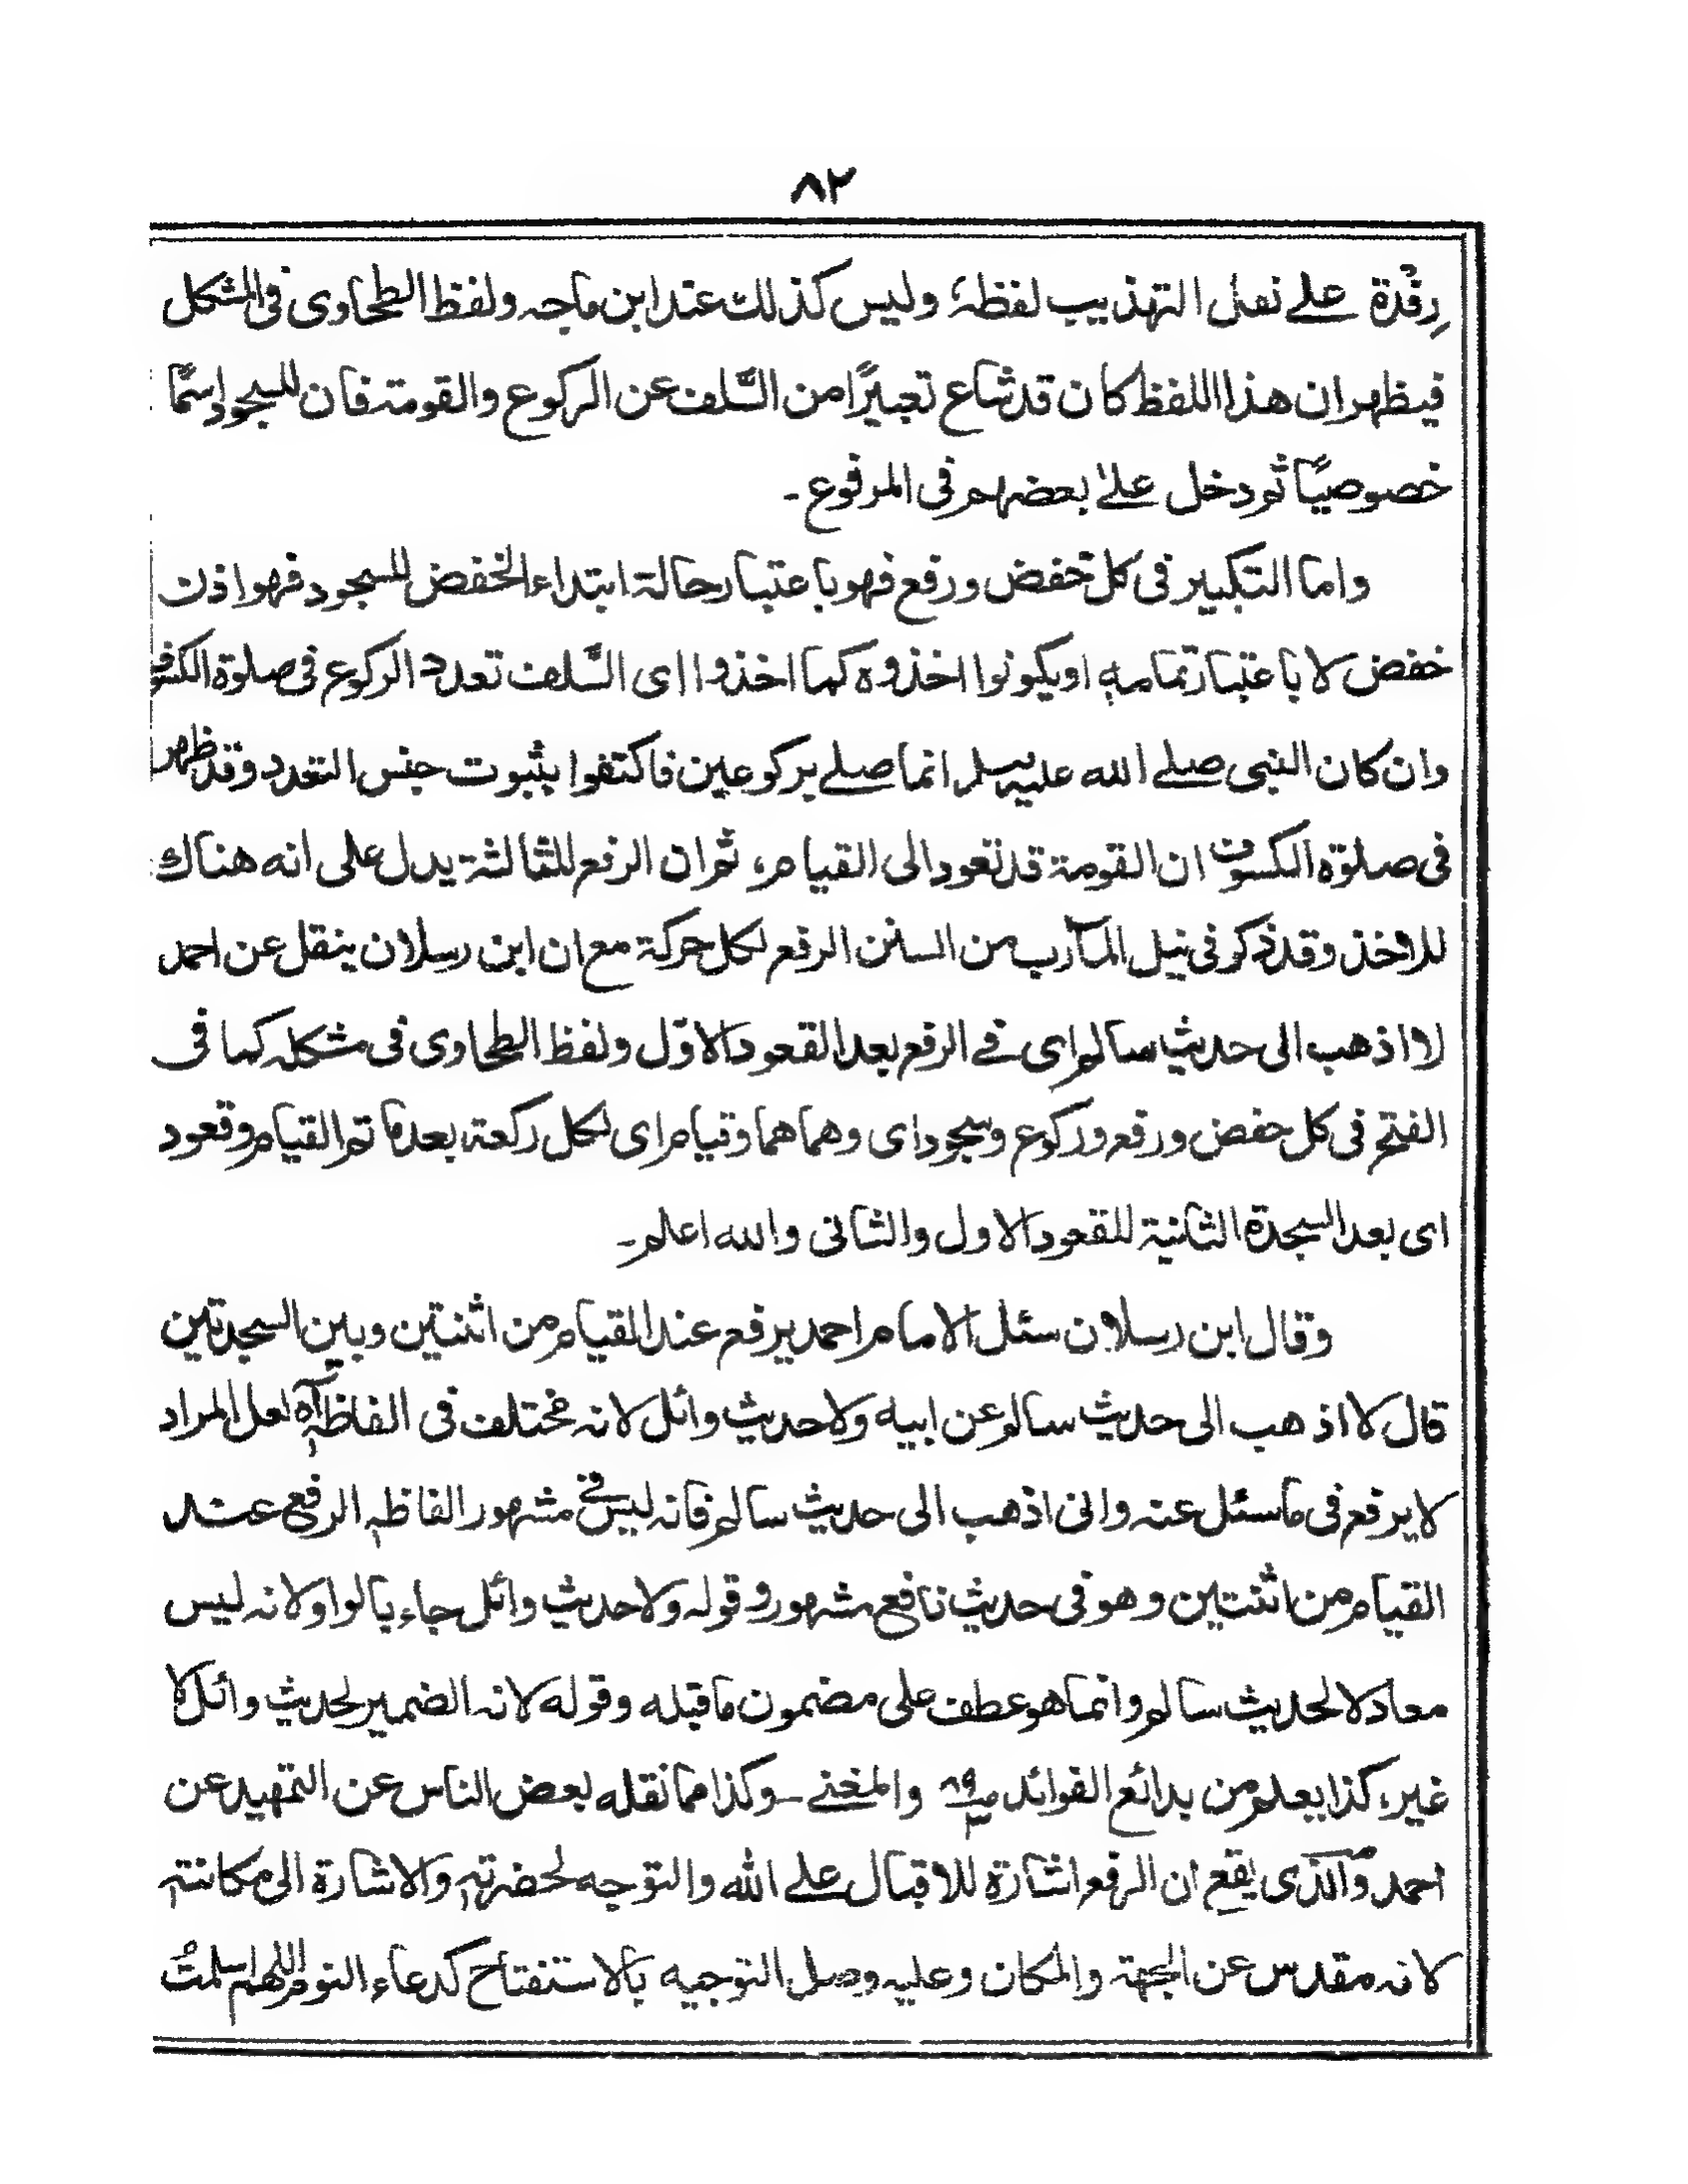 ٨٢
رِفدة علے نقل التهذيب لفظهٗ، وليس كذلك عند ابن ماجه ولفظ الطحاوى فى المشكل
فيظهر ان هذا اللفظ كان قد شاع تعبيرًا من السَّلف عن الركوع والقومة فان للسجود اسمًا
خصوصيًا ثم دخل علےٰ بعضهم فى المرفوع ۔
واما التكبير فى كل خفض ورفع فهو باعتبار حالة ابتداء الخفض للسجود فهو اذن
خفض لا باعتبار تمامهٖ او يكونوا اخذوه كما اخذوا اى السَّلف تعدد الركوع فى صلوٰة الكسو
وان كان النبى صلے الله عليه وسلم انما صلے بركوعين فاكتفوا بثبوت جنس التعدد وقد ظهر
فى صلوٰة الكسوف ان القومة قد تعود الى القيام، ثم ان الرفع للثالثة يدل على انه هناك
للاخذ وقد ذكر فى نيل المآرب من السنن الرفع لكل حركة مع ان ابن رسلان ينقل عن احمد
لا اذهب الى حديث سالم اى فے الرفع بعد القعود الاوّل ولفظ الطحاوى فى مشكله كما فى
الفتح فى كل خفض ورفع وركوع وسجود اى وهما هما وقيام اى لكل ركعة بعد ما تم القيام وقعود
اى بعد السجدة الثانية للقعود الاول والثانى والله اعلم۔
وقال ابن رسلان سئل الامام احمد يرفع عند القيام من اثنتين وبين السجدتين
قال لا اذهب الى حديث سالم عن ابيه ولا حديث وائل لانه مختلف فى الفاظهٖ آه لعل المراد
لا يرفع فى ما سئل عنه وانى اذهب الى حديث سالم فانه ليس فے مشهور الفاظهٖ الرفع عند
القيام من اثنتين وهو فى حديث نافع مشهور وقوله ولا حديث وائل جاء بالواو لانه ليس
معادلا لحديث سالم وانما هو عطف على مضمون ما قبله وقوله لانه الضمير لحديث وائل لا
غير، كذا يعلم من بدائع الفوائد ص٨٩ ٣ والمغنے ــ وكذا مما نقله بعض الناس عن التمهيد عن
احمد والّذى يقع ان الرفع اشارة للاقبال علے الله والتوجه لحضرتهٖ والاشارة الى مكانتهٖ
لانه مقدس عن الجهة والمكان وعليه وصل التوجيه بالاستفتاح كدعاء النوم اللهم اسلمتُ